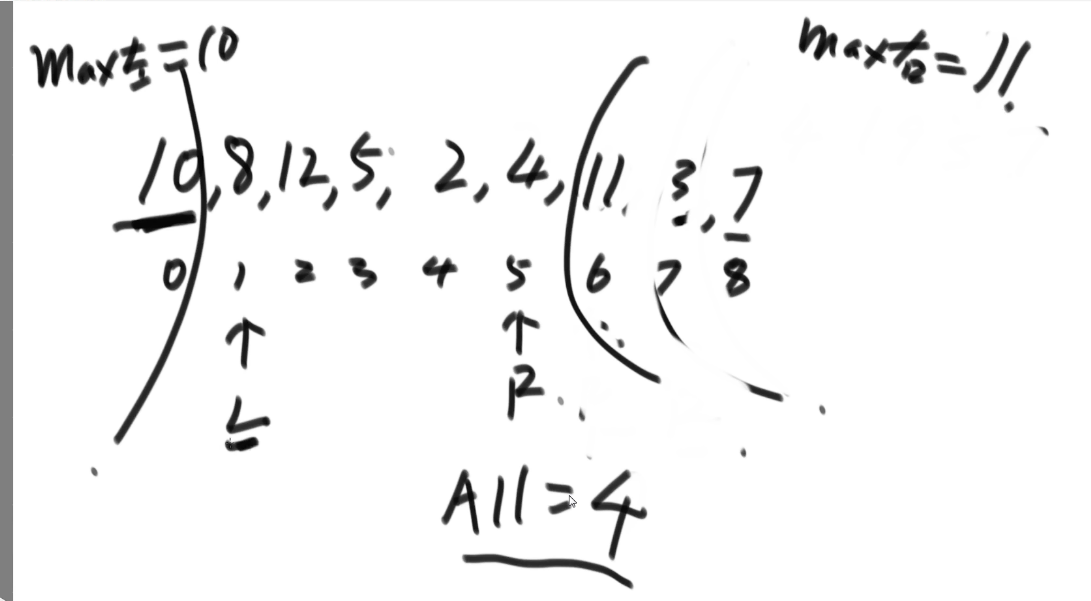 max左=10
max右=11
10,8,12,5, 2,4,11, 3,7
0 1 2 3 4 5 6 7 8
↑ ↑
L R
All=4